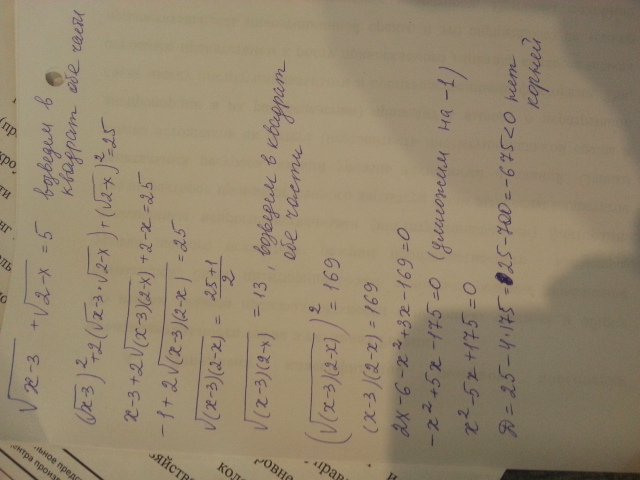 √x-3 + √2-x = 5 возведем в
квадрат обе части
(√x-3)² + 2(√x-3·√2-x) + (√2-x)² = 25
x-3+2√(x-3)(2-x) + 2-x = 25
-1+2√(x-3)(2-x) = 25
√(x-3)(2-x) = 25+1/2
√(x-3)(2-x) = 13, возведем в квадрат
обе части
(√(x-3)(2-x))² = 169
(x-3)(2-x) = 169
2x-6-x²+3x-169=0
-x²+5x-175=0 (умножим на -1)
x²-5x+175=0
D=25-4·175=25-700=-675<0 нет
корней